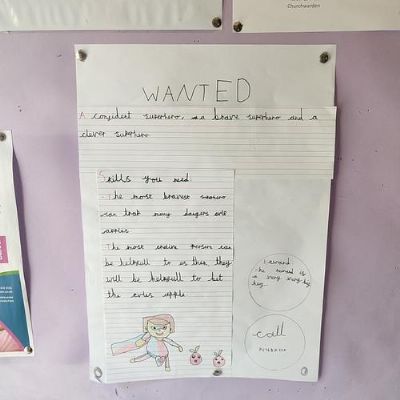 Churchwarden
WANTED
A confident superhero, is a brave superhero and a
clever superhero
Skills you need
The most bravest superhero
can that many dangers evil
apples
The most creative person can
be helpfull to us than they
will be helpfull to but
the evles apple
reward
the reward is
a very very big
hug
call